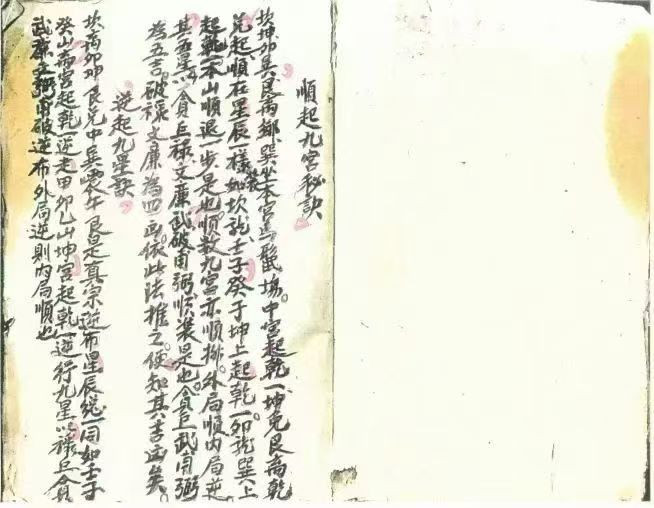 順起九宮秘訣
坎坤卯巽艮离鄉巽坐本宮馬鬣場中宮起乾一坤兌艮离乾
兌起順在星辰一樣如坎龍壬子癸于坤上起乾一卯龍巽上
起乾一本山順退一步是也順數九宮亦順排外局順內局逆
其五星以貪巨祿文廉武破甫弼順裝是也貪巨武甫弼
為五吉破祿文廉為四凶依此法推之便知其吉凶矣
逆起九星訣
坎离卯卯艮兌中巽震午艮是真宗逆布星辰純一同如壬子
癸山离宮起乾一逆走甲卯乙山坤宮起乾一逆行九星以祿巨貪
武廉文弼甫破逆布外局逆則內局順也